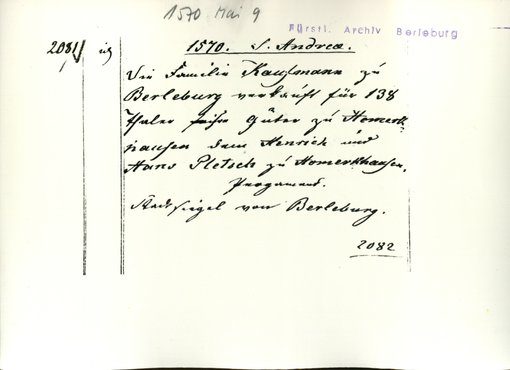 1570 Mai 9
Fürstl. Archiv Berleburg
2081
1570. S. Andrea.
Die Familie Kaufmann zu
Berleburg verkauft für 138
Thaler Güter zu Homerk-
hausen dem Henrich und
Hans Pletsch zu Homerkhausen.
Pergament.
Stadtsiegel von Berleburg.
2082